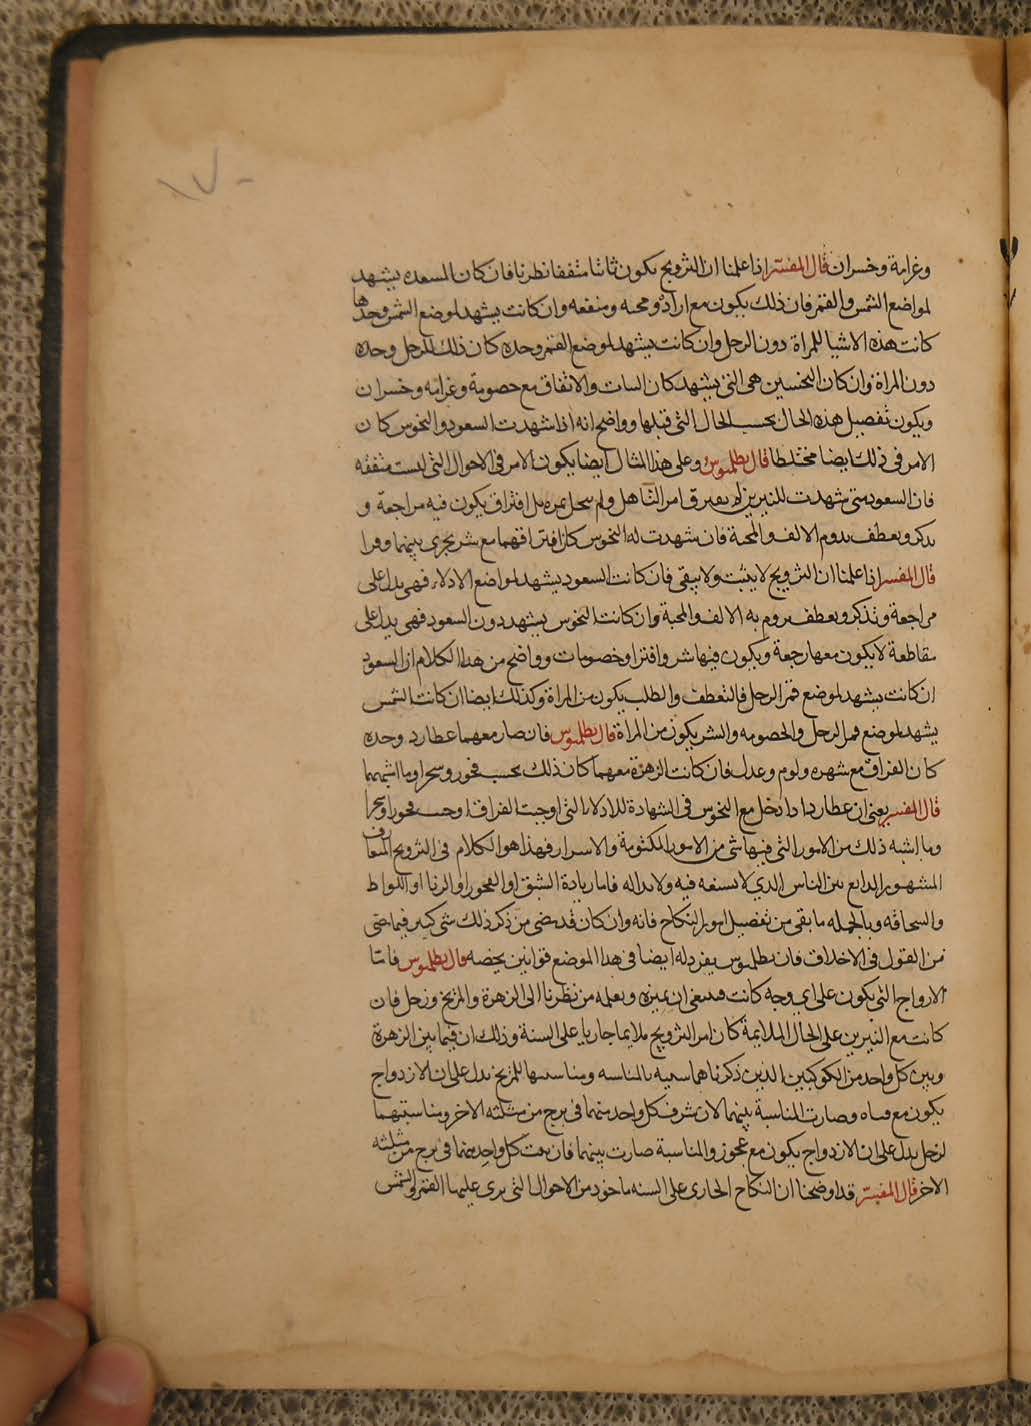 ١٧٠
وغرامة وخسران قال المفسر اذا علمنا ان التزويج يكون ثابتا متفقا نظرنا فان كان السعده يشهد
لمواضع الشمس والقمر فان ذلك يكون مع ارادة ومحبه ومنفعه وان كانت يشهد لموضع الشمس وحدها
كانت هذه الاشيا للمراة دون الرجل وان كانت يشهد لموضع القمر وحده كان ذلك للرجل وحده
دون المراة وان كان النحسين هى التى يشهد كان الثبات والاتفاق مع خصومة وغرامه وخسران
ويكون تفصيل هذه الحال بحسب الحال التى قبلها وواضح انه اذا شهدت السعود والنحوس كان
الامر فى ذلك ايضا مختلطا قال بطلميوس وعلى هذا المثال ايضا يكون الامر فى الاحوال التى ليست متفقه
فان السعود متى شهدت للنيرين امر التاهل ولم بل افتراق يكون فيه مراجعة و
تذكر وتعطف يدوم الالف والمحبة فان شهدت له النحوس كان افتراقهما مع شر يجرى بينهما
قال المفسر اذا علمنا ان التزويج لا يثبت ولا يبقى فان كانت السعود يشهد لمواضع الادلاء فهى يدل على
مراجعة وتذكر وتعطف يدوم به الالف والمحبة وان كانت النحوس يشهد دون السعود فهى يدل على
مقاطعة لا يكون معها رجعة ويكون فيها شر وافترا وخصومات وواضح من هذا الكلام ان السعود
ان كانت يشهد لموضع قمر الرجل فالتعطف والطلب يكون من المراة وكذلك ايضا ان كانت الشمس
يشهد لموضع قمر الرجل والخصومه والشر يكون من المراة قال بطلميوس فان صار معهما عطارد وحده
كان الفراق مع شهره ولوم وعدل فان كانت الزهرة معهما كان ذلك بحسب فجور وسحر او ما اشبههما
قال المفسر يعنى ان عطارد اذا دخل مع النحوس فى الشهادة للادلاء التى اوجبت الفراق اوجب فجورا وسحرا
وما اشبه ذلك من الامور التى فيها شى من الامور المكتومة والاسرار فهذا هو الكلام فى التزويج المتعارف
المشهور الذايع بين الناس الذي لا فيه ولا فاما زيادة الشبق او الفجور او الزنا او اللواط
والسحاقه وبالجمله ما بقى من تفصيل امور النكاح فانه وان كان قد مضى من ذكر ذلك شى كبير فيما مضى
من القول فى الاخلاق فان بطلميوس يفرد له ايضا فى هذا الموضع قوانين يخصه قال بطلميوس فاما
الازواج التى يكون على اي وجه كانت فينبغى ان نميزه ونعلمه من نظرنا الى الزهرة والمريخ وزحل فان
كانت مع النيرين على الحال الملايمة كان امر التزويج ملايما جاريا على السنة وذلك ان فيما بين الزهرة
وبين كل واحد من الكوكبين الذين ذكرناهما بالمناسبه ومناسبتها للمريخ يدل على ان الازدواج
يكون مع فتاه وصارت المناسبة بينهما لان شرف كل واحد منهما فى برج من مثلثه الاخر ومناسبتهما
لزحل يدل على ان الازدواج يكون مع عجوز والمناسبة صارت بينهما فان بيت كل واحد منهما فى برج من مثلثه
الاخر قال المفسر قد اوضحنا ان النكاح الجارى على السنه ماخوذ من الاحوال التى يرى عليها القمر والشمس